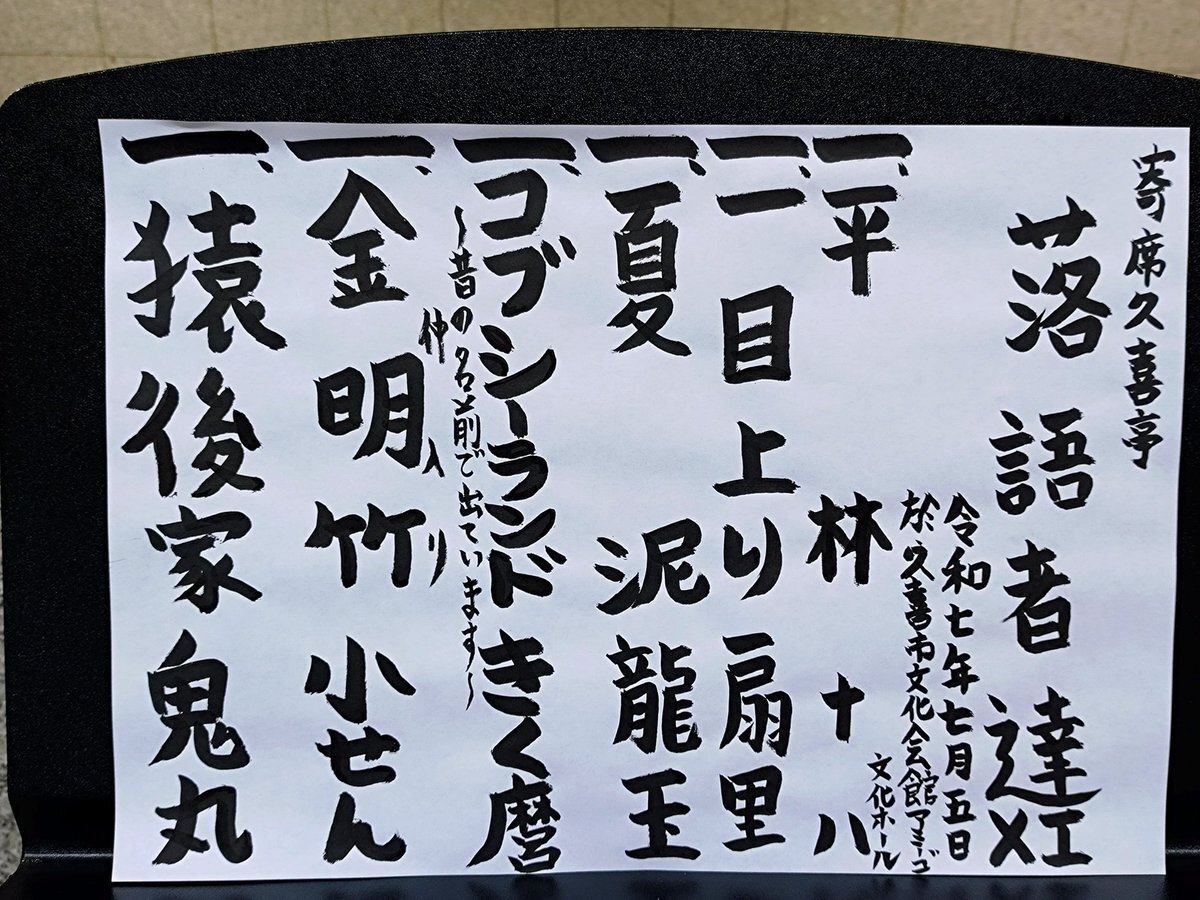 寄席久喜亭
落語者達XI
令和七年七月五日
於:久喜市文化会館アミーゴ
文化ホール
一、平林 十八
一、一目上り 扇里
一、夏泥 龍玉
一、コブシーランド きく麿
～昔の名前で出ています～
仲入り
一、金明竹 小せん
一、猿後家 鬼丸